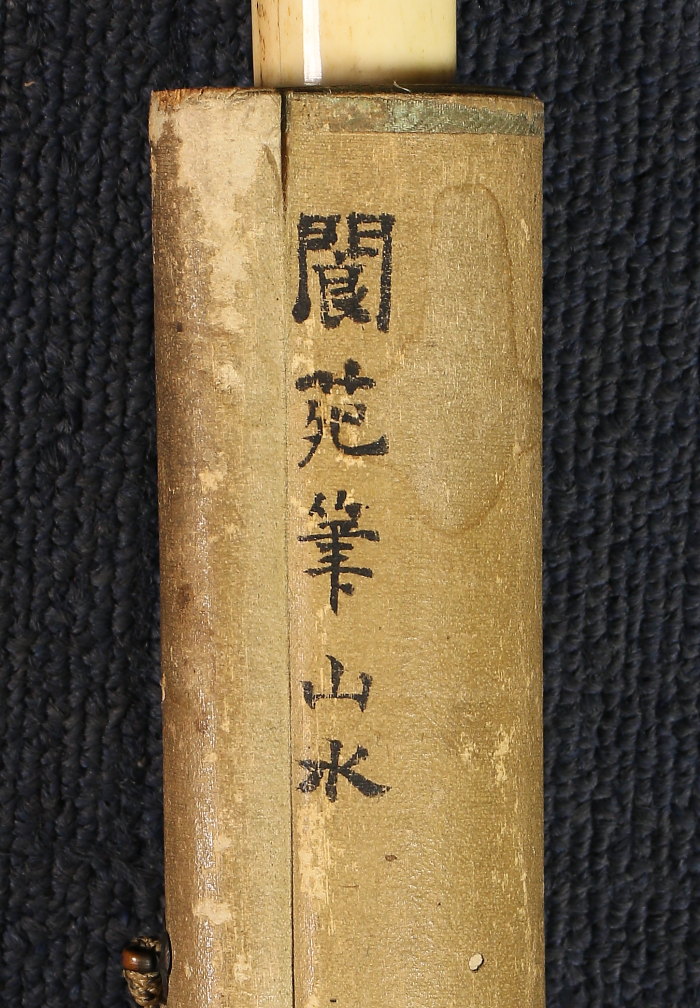 閬苑筆山水